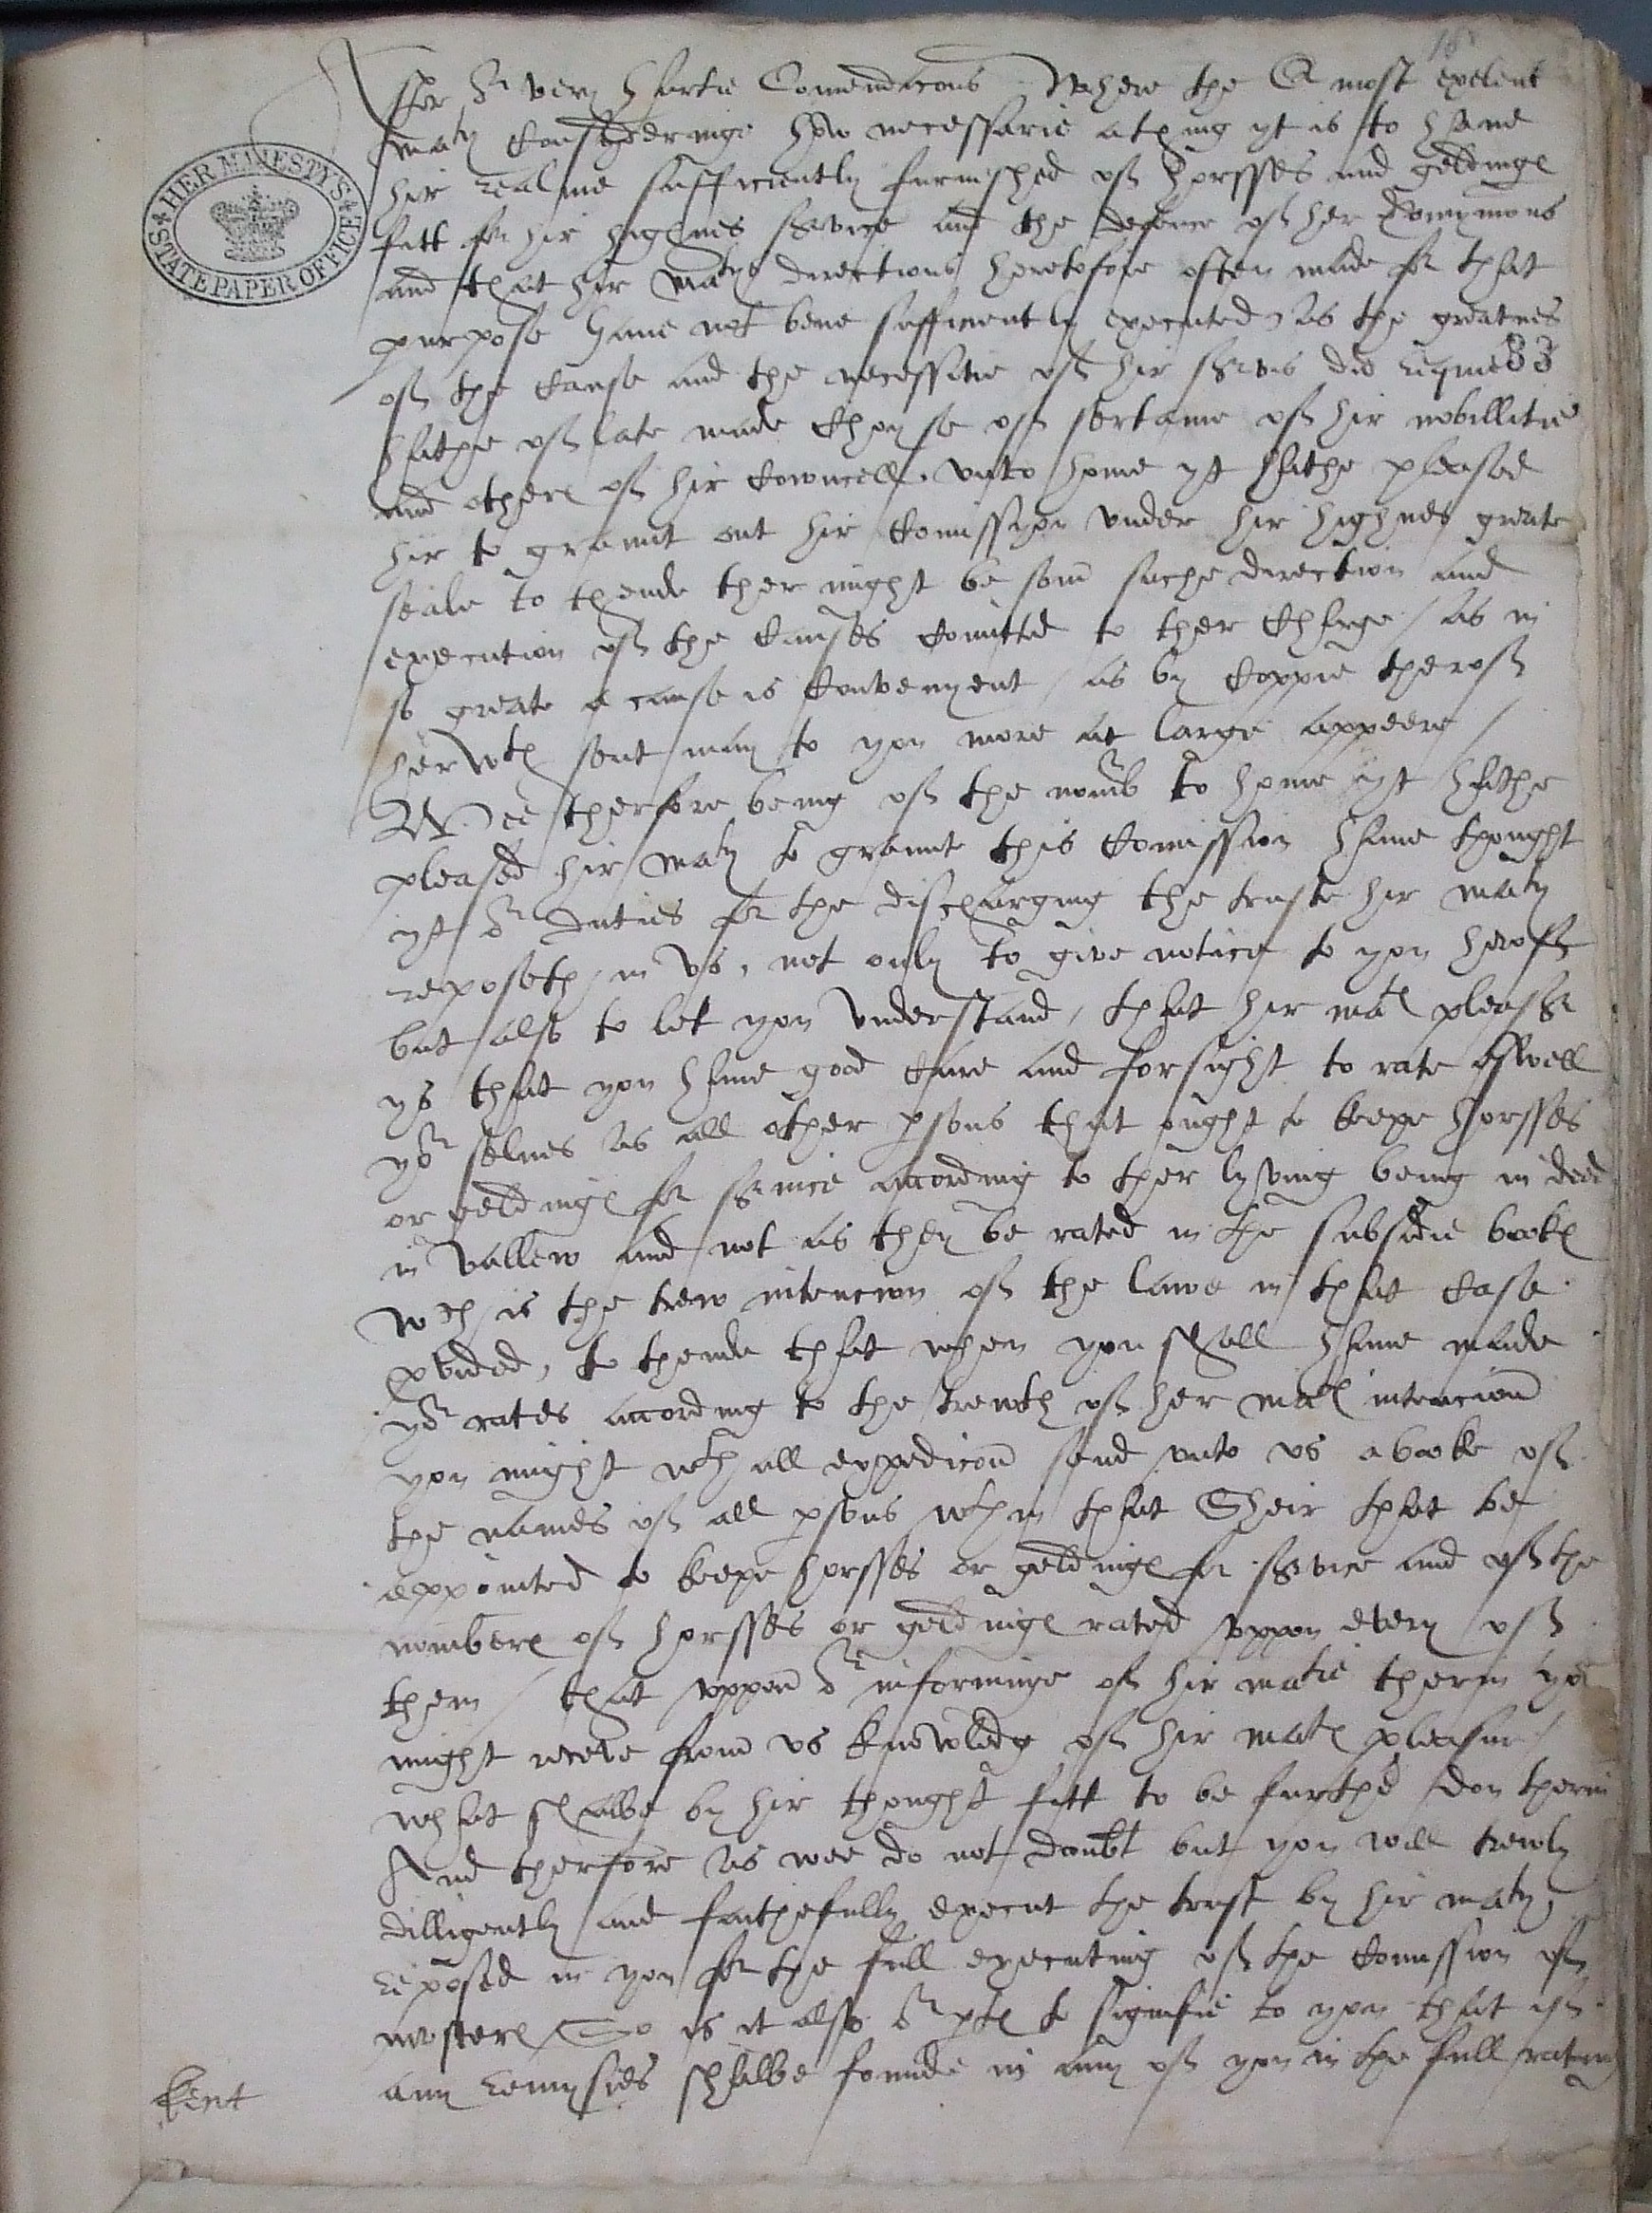 After or very hartie Comendacons Where the Q most exelent
maty Consyderinge how necessarie a thing yt is to have
hir realme sufficiently furnesshed of horsses and geldinge
fitt for hir highnes service and the defence of her Domynions
and that hir matys directions heretofore often made for that
purpose have not bene sufficiently executed as the greatnes
of the Cause and the necessitie of hir servis did requier
hathe of late made Choyse of sertaine of hir nobillitie
and others of hir Councell, unto home yt hathe pleased
hir to graunt out hir Comission under hir highnes greate
seale to thende ther might be som suche direction and
execution of the Causes Comitted to ther Charge / as in
so greate a cause is Convenyent / as by Coppie therof
herwth sent may to you more at large appeere /
Wee therfore being of the nombr to home yt hathe
pleased hir maty to graunte this Comission have thought
yt or duties for the discharging the truste hir maty
reposeth in us, not only to give notice to you herof
but also to let you understand, that hir mats pleasr
ys that you have good Care and forsight to rate aswell
yor selves as all other psons that ought to keepe horsses
or geldings for service according to ther lyving being in deed
in vallew and not as they be rated in the subsidie bookes
wch is the trew intencion of the lawe in that Case
pvided, to thende that when you shall have made
yor rates according to the trewth of her mats intencion
you might wth all expedicon send unto us a booke of
the names of all psons wthin that Sheir that be
appointed to keepe horsses or geldings for service and of the
nombers of horsses or geldings rated uppon every of
them / that uppon or informinge of hir matie therin you
might receve from us knowledg of hir mats pleasur /
what shalbe by hir thought fitt to be further don therin
And therfore as wee do not doubt but you will trewly
dilligently and faithefully execut the trust by hir maty
reposed in you for the full executing of the Comission of
mosters / So is it also or pts to signifie to you that if
any remysses shalbe founde in any of you in the full rating
Kent
HER MAJESTY'S
STATE PAPER OFFICE